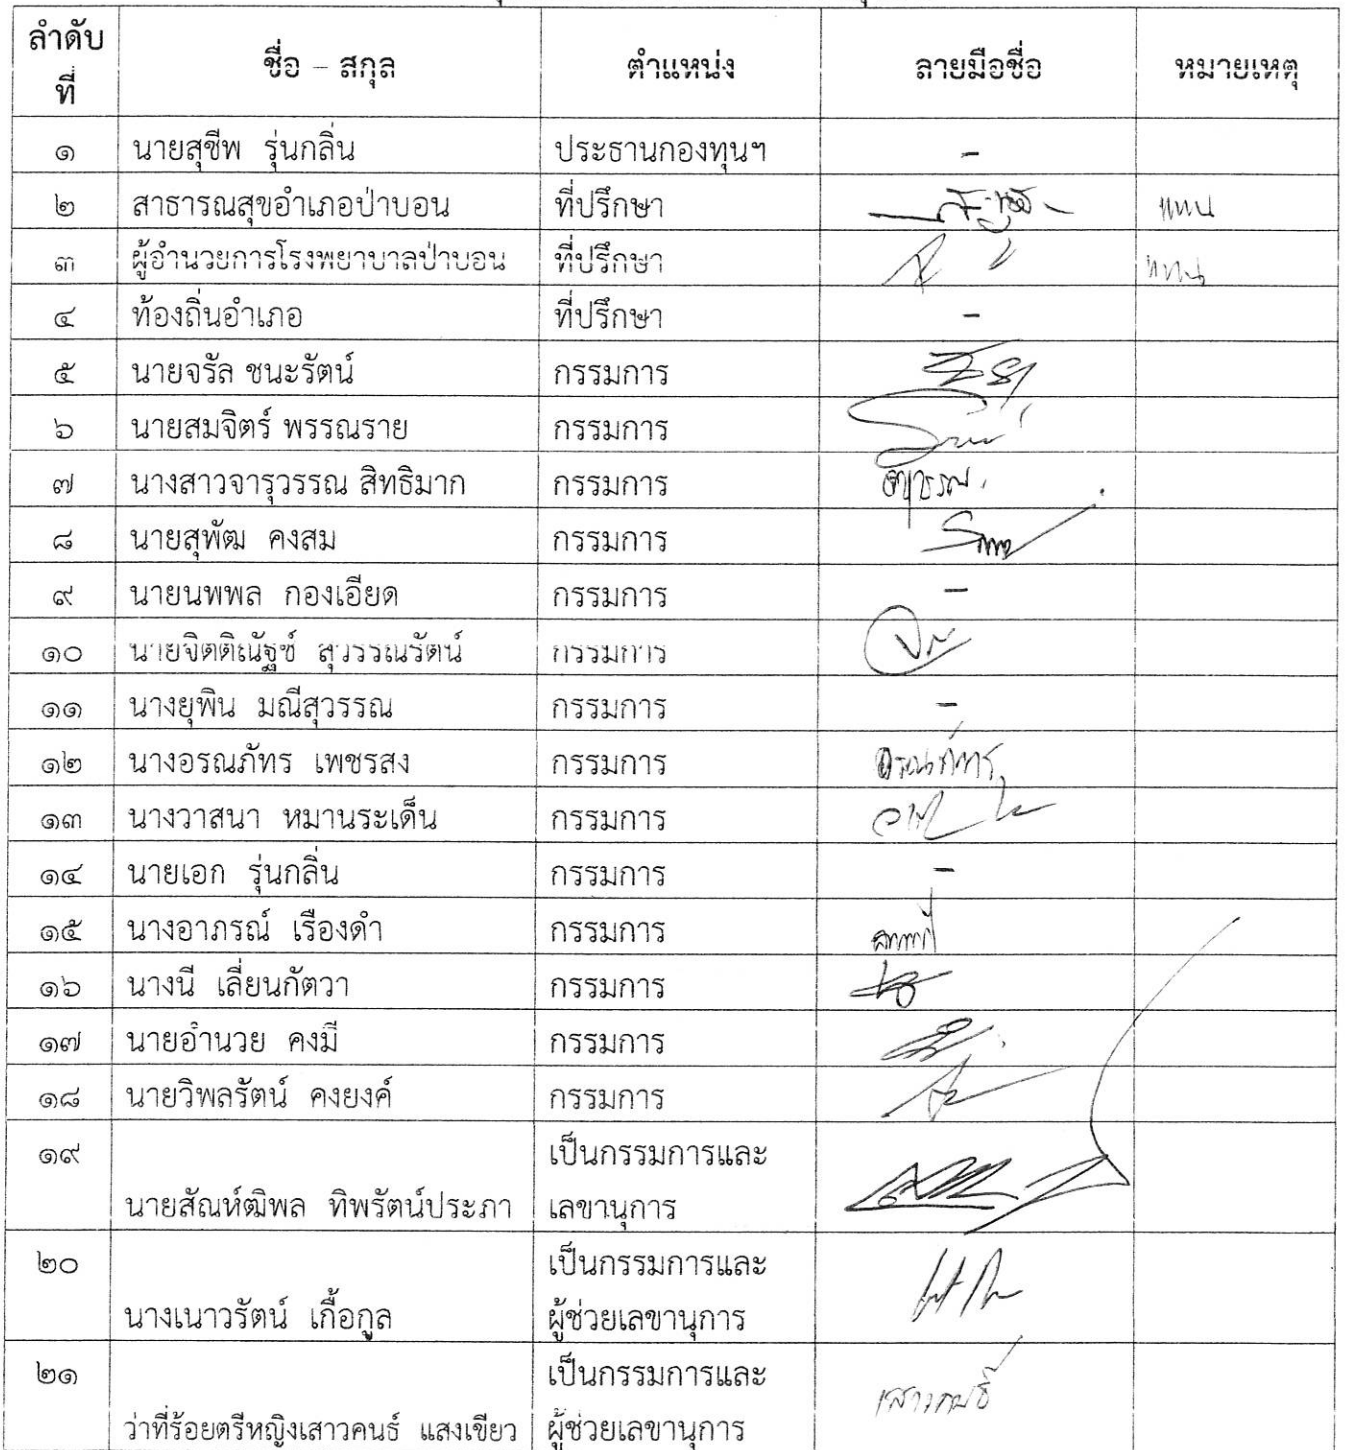 ลำดับ
ที่
ชื่อ – สกุล
ตำแหน่ง
ลายมือชื่อ
หมายเหตุ
๑ นายสุชีพ รุ่นกลิ่น ประธานกองทุนฯ -
๒ สาธารณสุขอำเภอป่าบอน ที่ปรึกษา แทน
๓ ผู้อำนวยการโรงพยาบาลป่าบอน ที่ปรึกษา แทน
๔ ท้องถิ่นอำเภอ ที่ปรึกษา -
๕ นายจรัล ชนะรัตน์ กรรมการ
๖ นายสมจิตร์ พรรณราย กรรมการ
๗ นางสาวจารุวรรณ สิทธิมาก กรรมการ จารุวรรณ
๘ นายสุพัฒ คงสม กรรมการ
๙ นายนพพล กองเอียด กรรมการ -
๑๐ นายจิตติณัฐช์ สุวรรณรัตน์ กรรมการ
๑๑ นางยุพิน มณีสุวรรณ กรรมการ -
๑๒ นางอรณภัทร เพชรสง กรรมการ อรณภัทร
๑๓ นางวาสนา หมานระเด็น กรรมการ
๑๔ นายเอก รุ่นกลิ่น กรรมการ -
๑๕ นางอาภรณ์ เรืองดำ กรรมการ
๑๖ นางนี เลี่ยนกัตวา กรรมการ
๑๗ นายอำนวย คงมี กรรมการ
๑๘ นายวิพลรัตน์ คงยงค์ กรรมการ
๑๙ เป็นกรรมการและ
นายสัณห์ฒิพล ทิพรัตน์ประภา เลขานุการ
๒๐ เป็นกรรมการและ
นางเนาวรัตน์ เกื้อกูล ผู้ช่วยเลขานุการ
๒๑ เป็นกรรมการและ
ว่าที่ร้อยตรีหญิงเสาวคนธ์ แสงเขียว ผู้ช่วยเลขานุการ เสาวคนธ์